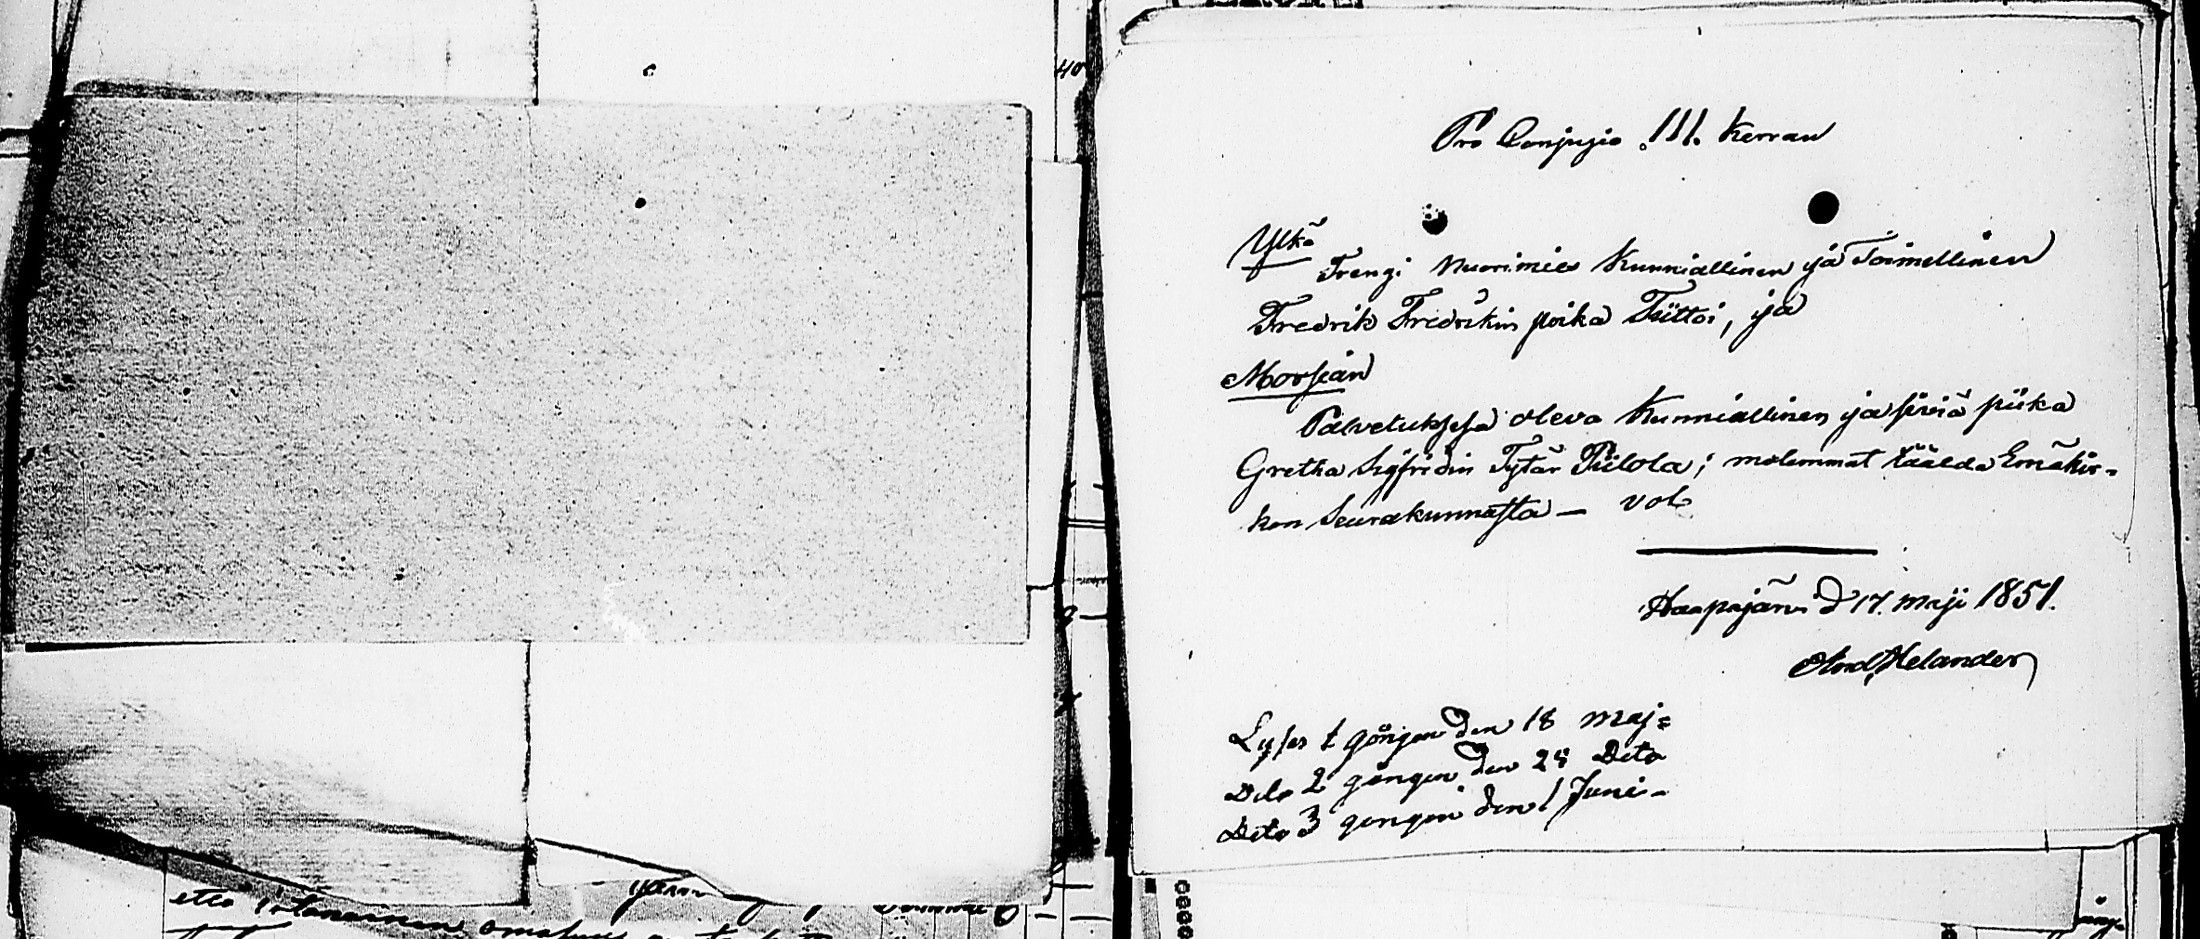 40
Pro Conjugio III. Kerran
Ylkä
Trengi Nuorimies Kunniallinen ja Toimellinen
Fredrik Fredrikin poika Tiittoi, ja
Morsian
Palveluksesa oleva Kunniallinen ja siviä piika
Gretha Sigfridin Tytär Piilola; molemmat täälda Emäkir=
kon Seurakunnasta —
Haapajärvi d 17. Maji 1851.
And. Helander
Lyses 1 gången den 18 Maj=
Dito 2 gången den 28 Dito
Dito 3 gången den 1 Juni—